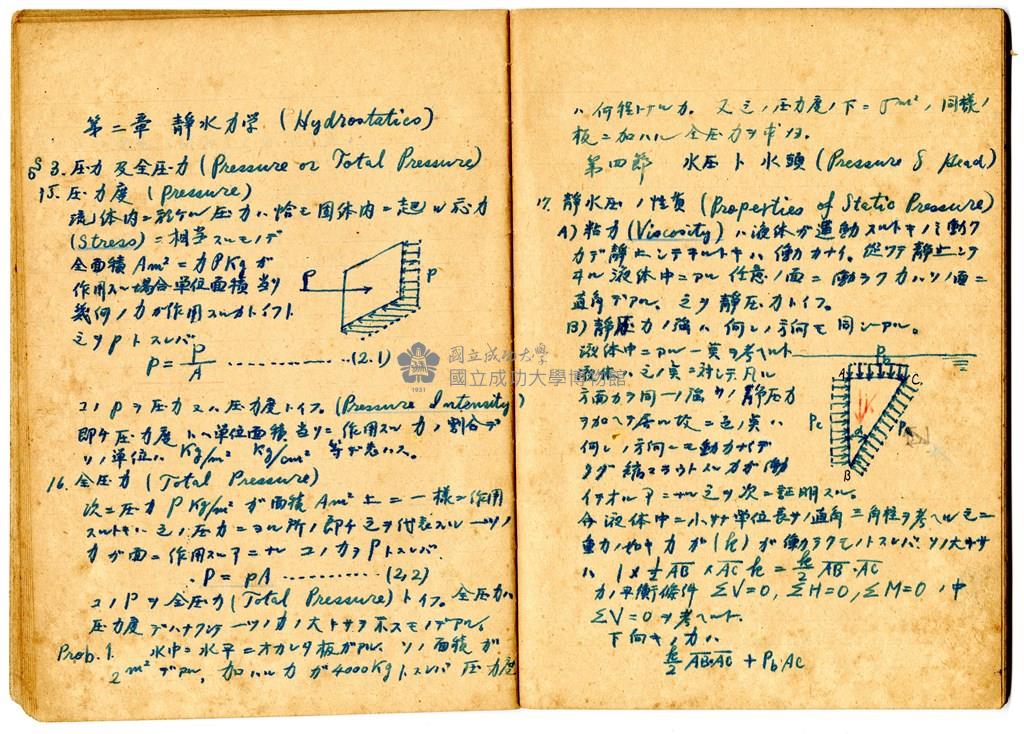 第二章 静水力学 (Hydrostatics)
§3. 圧力及全圧力 (Pressure or Total Pressure)
15. 圧力度 (Pressure)
流体内ニ於ケル圧力ハ恰モ固体内ニ起ル応力
(Stress) ニ相当スルモノデ
全面積 Am² ニ力 P Kg ガ
作用スル場合単位面積当リ
幾何ノ力ガ作用スルカトイフト
之ヲ p トスレバ
P
p
p = P/A ‥‥‥‥‥ (2.1)
コノ p ヲ圧力又ハ圧力度トイフ。(Pressure Intensity)
即チ圧力度トハ単位面積当リニ作用スル力ノ割合デ
ソノ単位ハ Kg/m² Kg/cm² 等デ表ハス。
16. 全圧力 (Total Pressure)
次ニ圧力 P Kg/m² ガ面積 Am² 上ニ一様ニ作用
スルトキハ之ノ圧力ニヨル所ノ即チ之ヲ代表スル一ツノ
力ガ面ニ作用スル
コノ力ヲ P トスレバ
P = pA ‥‥‥‥‥ (2.2)
コノ P ヲ全圧力 (Total Pressure) トイフ。全圧力ハ
圧力度デハナク一ツノ力ノ大キサヲ示スモノデアル。
Prob. 1. 水中ニ水平ニオカレタ板ガアル。ソノ面積ガ
2m² デアル。加ハル力ガ 4000Kg トスレバ圧力度
ハ何程トナルカ。又之ノ圧力度ノ下ニ 5m² ノ同様ノ
板ニ加ハル全圧力ヲ求ム。
第四節 水圧ト水頭 (Pressure & Head)
17. 静水圧ノ性質 (Properties of Static Pressure)
A) 粘力 (Viscosity) ハ液体ガ運動スルトキノミ働ク
力デ静止シテヰルトキハ働カナイ。従ツテ静止シテ
ヰル液体中ニアル任意ノ面ニ働ラク力ハソノ面ニ
直角デアル。之ヲ静圧力トイフ。
B) 静圧力ノ強ハ何レノ方向モ同シーアル。
液体中ニアル一点ヲ考ヘルト
液体ハ之ノ点ニ対シテ凡ル
方面カラ同一ノ強サノ静圧力
ヲ加ヘテ居ル故ニ之ノ点ハ
何レノ方向ニモ動カナイデ
タダ縮マラウトスル力ガ働
之ヲ次ニ証明スル。
今液体中ニ小サナ単位長サノ直角三角柱ヲ考ヘル之ニ
重力ノ如キ力ガ (k) ガ働ラクモノトスレバソノ大キサ
ハ 1 × ½ AB × AC k = k/2 AB・AC
力ノ平衡條件 ΣV=0, ΣH=0, ΣM=0 ノ中
ΣV=0 ヲ考ヘルト
下向キノ力ハ
k/2 AB・AC + Pb AC
Pb
A
C
Pc
k
B
國立成功大學
國立成功大學博物館
1931